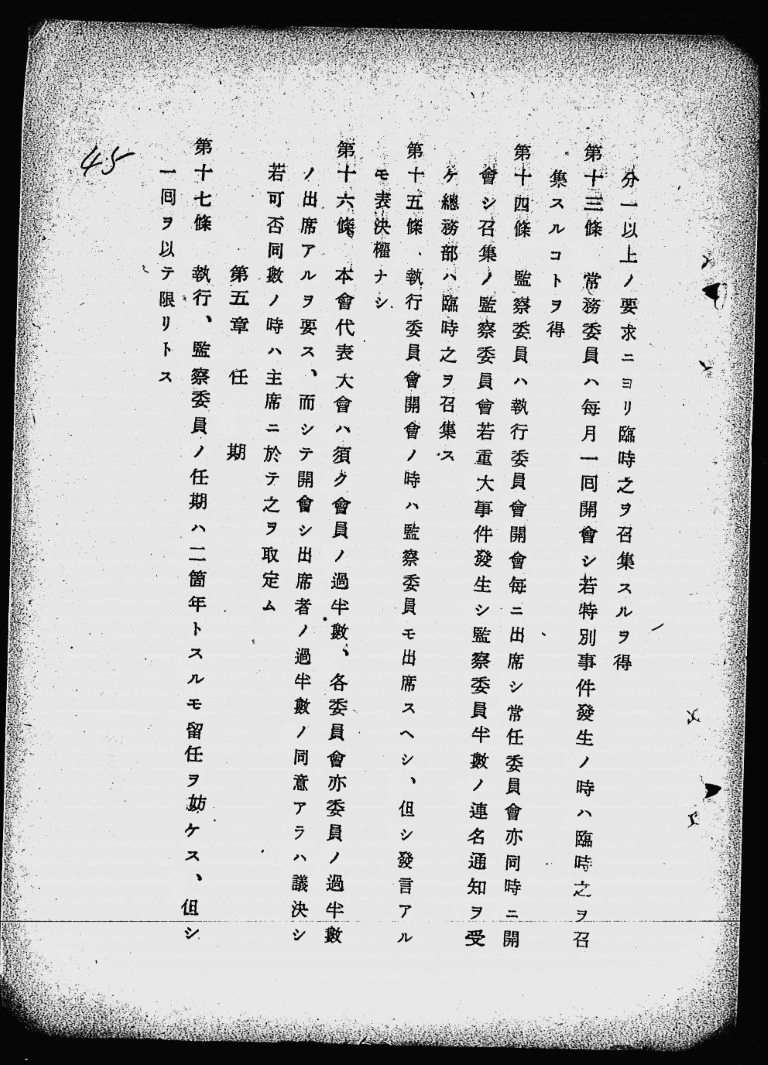 分一以上ノ要求ニヨリ臨時之ヲ召集スルヲ得
第十三條　常務委員ハ每月一回開會シ若特別事件發生ノ時ハ臨時之ヲ召
集スルコトヲ得
第十四條　監察委員ハ執行委員會開會每ニ出席シ常任委員會亦同時ニ開
會シ召集ノ監察委員會若重大事件發生シ監察委員半數ノ連名通知ヲ受
ケ總務部ハ臨時之ヲ召集ス
第十五條、執行委員會開會ノ時ハ監察委員モ出席スヘシ、但シ發言アル
モ表決權ナシ
第十六條　本會代表大會ハ須ク會員ノ過半數、各委員會亦委員ノ過半數
ノ出席アルヲ要ス、而シテ開會シ出席者ノ過半數ノ同意アラハ議決シ
若可否同數ノ時ハ主席ニ於テ之ヲ取定ム
第五章　任　期
第十七條　執行、監察委員ノ任期ハ二箇年トスルモ留任ヲ妨ケス、但シ
一回ヲ以テ限リトス
45